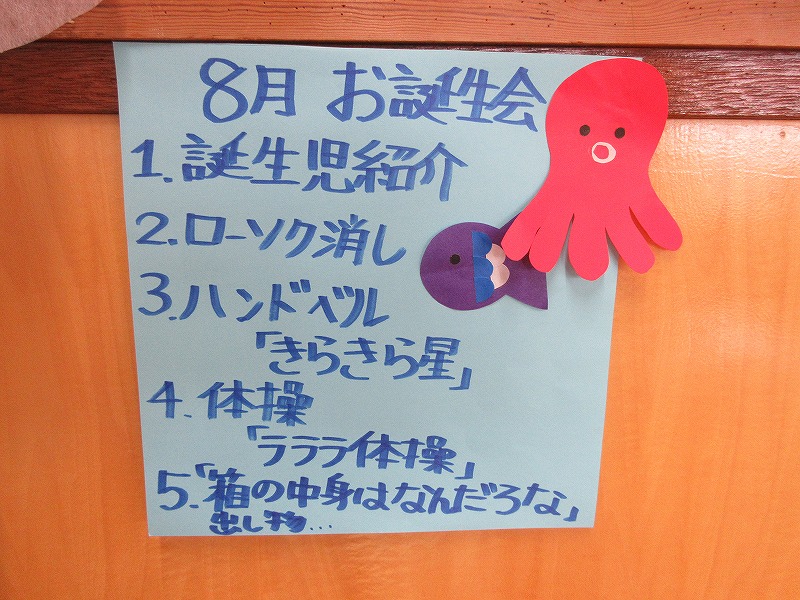 8月 お誕生会
1. 誕生児紹介
2. ローソク消し
3. ハンドベル
「きらきら星」
4. 体操
「ラララ体操」
5. 「箱の中身はなんだろな」
出し物...